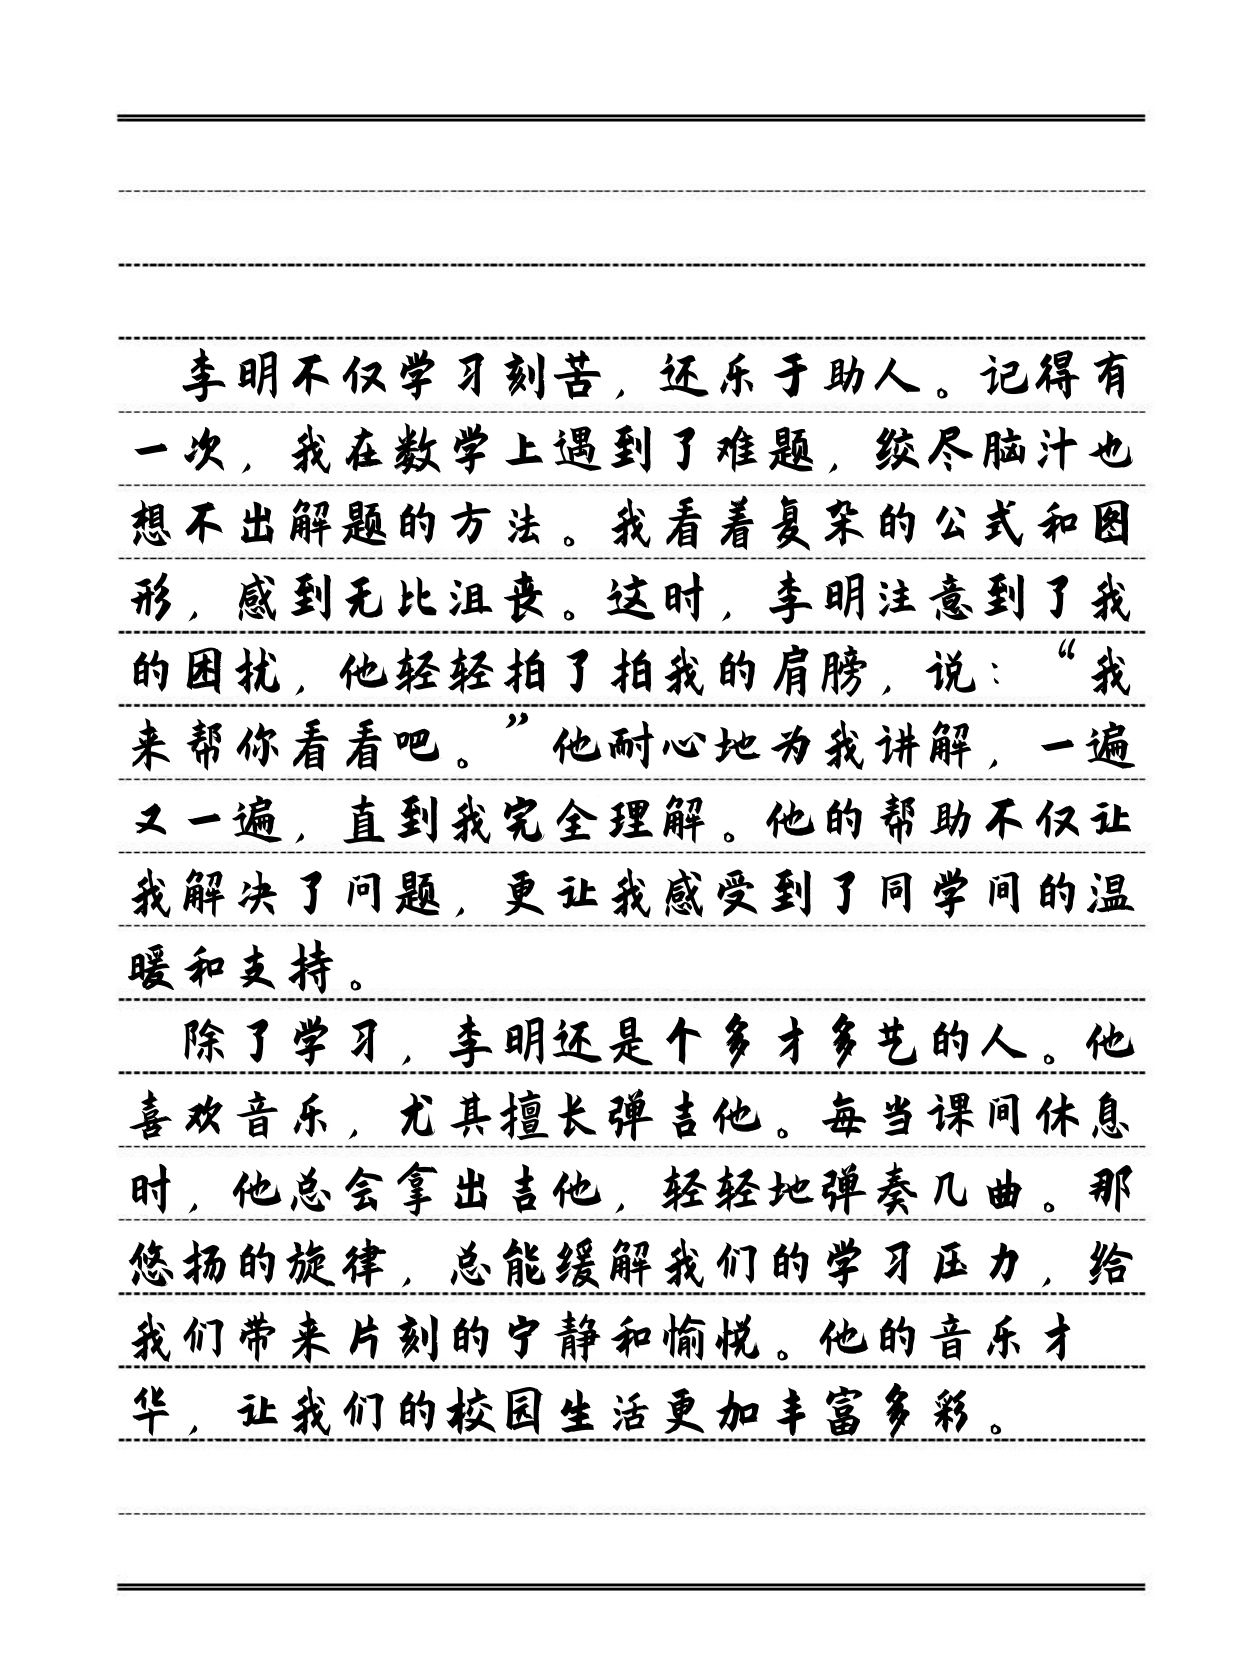 李明不仅学习刻苦，还乐于助人。记得有
一次，我在数学上遇到了难题，绞尽脑汁也
想不出解题的方法。我看着复杂的公式和图
形，感到无比沮丧。这时，李明注意到了我
的困扰，他轻轻拍了拍我的肩膀，说：“我
来帮你看看吧。”他耐心地为我讲解，一遍
又一遍，直到我完全理解。他的帮助不仅让
我解决了问题，更让我感受到了同学间的温
暖和支持。
除了学习，李明还是个多才多艺的人。他
喜欢音乐，尤其擅长弹吉他。每当课间休息
时，他总会拿出吉他，轻轻地弹奏几曲。那
悠扬的旋律，总能缓解我们的学习压力，给
我们带来片刻的宁静和愉悦。他的音乐才
华，让我们的校园生活更加丰富多彩。